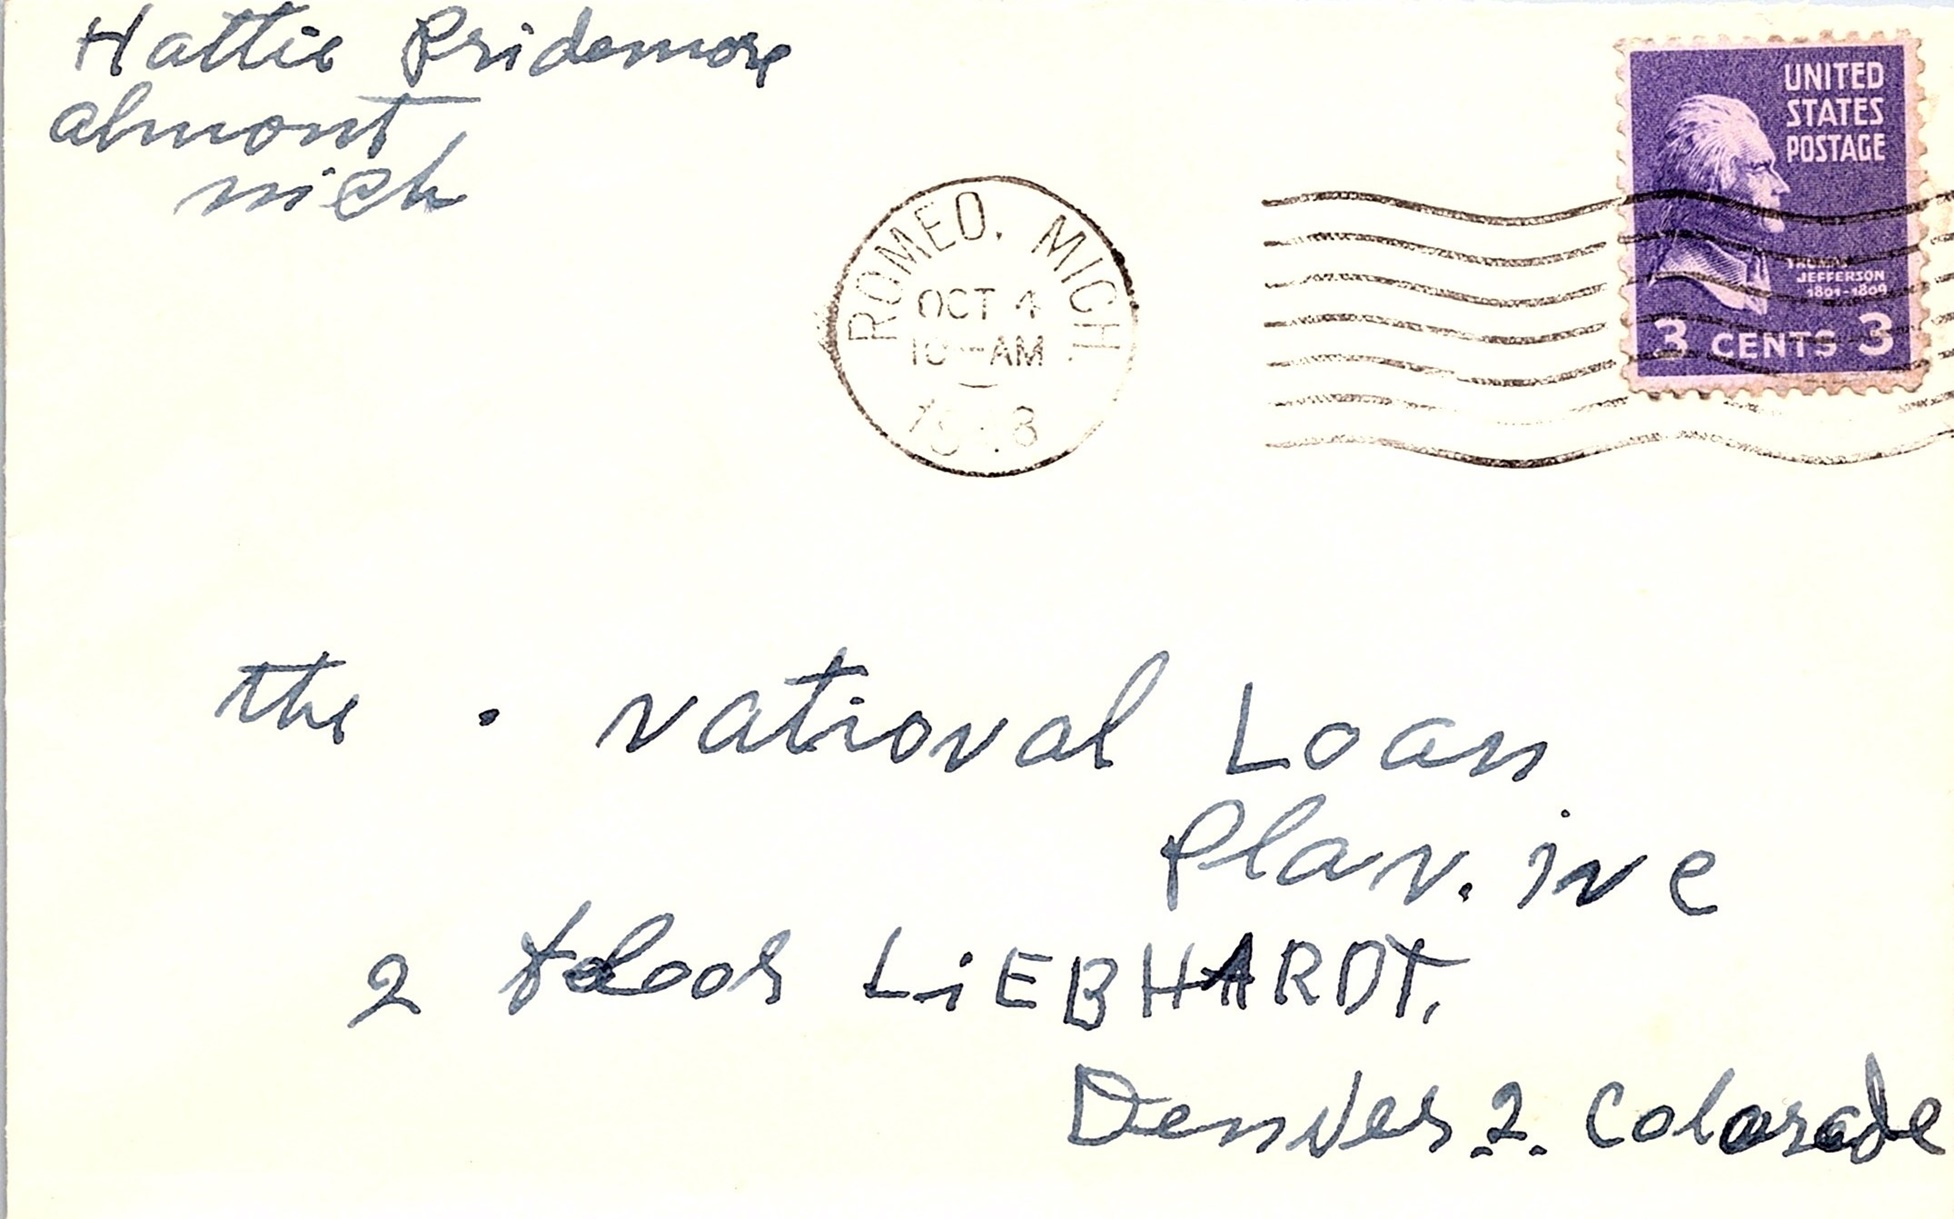 Hattie Pridemore
almont
mich
ROMEO, MICH.
OCT 4
10 - AM
1948
UNITED
STATES
POSTAGE
THOMAS
JEFFERSON
1801-1809
3 CENTS 3
the . National Loan
Plan. inc
2 floor LiEBHARDT.
Denver 2. Colorade